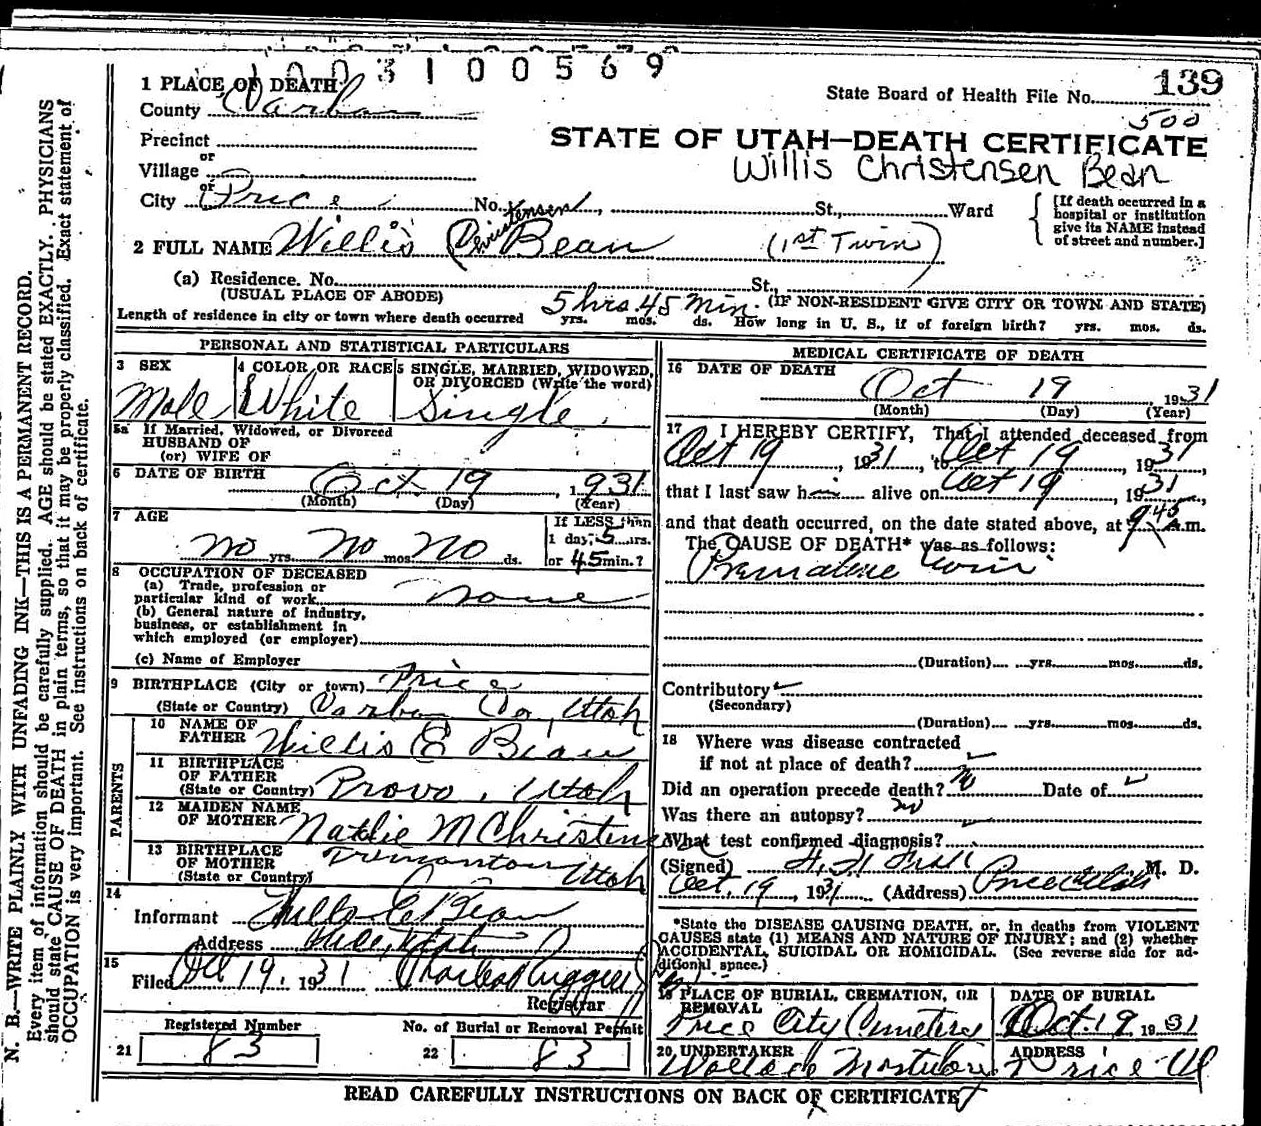 1 0 0 3 1 0 0 5 6 9
1 PLACE OF DEATH
State Board of Health File No. 139
County Carbon
500
Precinct
STATE OF UTAH—DEATH CERTIFICATE
or
Village
Willis Christensen Bean
or
City Price No. St., Ward
[If death occurred in a hospital or institution give its NAME instead of street and number.]
2 FULL NAME Willis Christensen Bean (1st Twin)
(a) Residence. No. St.,
(USUAL PLACE OF ABODE) (IF NON-RESIDENT GIVE CITY OR TOWN AND STATE)
5 hrs. 45 min.
Length of residence in city or town where death occurred yrs. mos. ds. How long in U. S., if of foreign birth? yrs. mos. ds.
PERSONAL AND STATISTICAL PARTICULARS
3 SEX
Male
4 COLOR OR RACE
White
5 SINGLE, MARRIED, WIDOWED,
OR DIVORCED (Write the word)
Single
5a If Married, Widowed, or Divorced
HUSBAND OF
(or) WIFE OF
6 DATE OF BIRTH Oct. 19, 1931
(Month) (Day) (Year)
7 AGE
no yrs. no mos. no ds.
If LESS than
1 day, 5 hrs.
or 45 min.?
8 OCCUPATION OF DECEASED
(a) Trade, profession or
particular kind of work none
(b) General nature of industry,
business, or establishment in
which employed (or employer)
(c) Name of Employer
9 BIRTHPLACE (City or town) Price
(State or Country) Carbon Co, Utah
PARENTS
10 NAME OF
FATHER Willis E Bean
11 BIRTHPLACE
OF FATHER
(State or Country) Provo, Utah
12 MAIDEN NAME
OF MOTHER Natlie M Christensen
13 BIRTHPLACE
OF MOTHER
(State or Country) Tremonton Utah
14
Informant Willis E Bean
Address Price, Utah
15
Filed Oct 19, 1931
Registrar
Registered Number
21 83
No. of Burial or Removal Permit
22 83
MEDICAL CERTIFICATE OF DEATH
16 DATE OF DEATH
Oct 19, 1931
(Month) (Day) (Year)
17 I HEREBY CERTIFY, That I attended deceased from
Oct 19, 1931, to Oct 19, 1931,
that I last saw him alive on Oct 19, 1931,
and that death occurred, on the date stated above, at 9:45 A.m.
The CAUSE OF DEATH* was as follows:
Premature twin
(Duration) yrs. mos. ds.
Contributory
(Secondary)
(Duration) yrs. mos. ds.
18 Where was disease contracted
if not at place of death?
Did an operation precede death? no Date of
Was there an autopsy? no
What test confirmed diagnosis?
(Signed) M. D.
Oct. 19, 1931 (Address) Price Utah
*State the DISEASE CAUSING DEATH, or, in deaths from VIOLENT
CAUSES state (1) MEANS AND NATURE OF INJURY; and (2) whether
ACCIDENTAL, SUICIDAL OR HOMICIDAL. (See reverse side for ad-
ditional space.)
19 PLACE OF BURIAL, CREMATION, OR
REMOVAL
Price City Cemetery
DATE OF BURIAL
Oct. 19 1931
20 UNDERTAKER
Wallace Mortuary
ADDRESS
Price Ut
READ CAREFULLY INSTRUCTIONS ON BACK OF CERTIFICATE
N. B.—WRITE PLAINLY WITH UNFADING INK—THIS IS A PERMANENT RECORD.
Every item of information should be carefully supplied. AGE should be stated EXACTLY. PHYSICIANS
should state CAUSE OF DEATH in plain terms, so that it may be properly classified. Exact statement of
OCCUPATION is very important. See instructions on back of certificate.